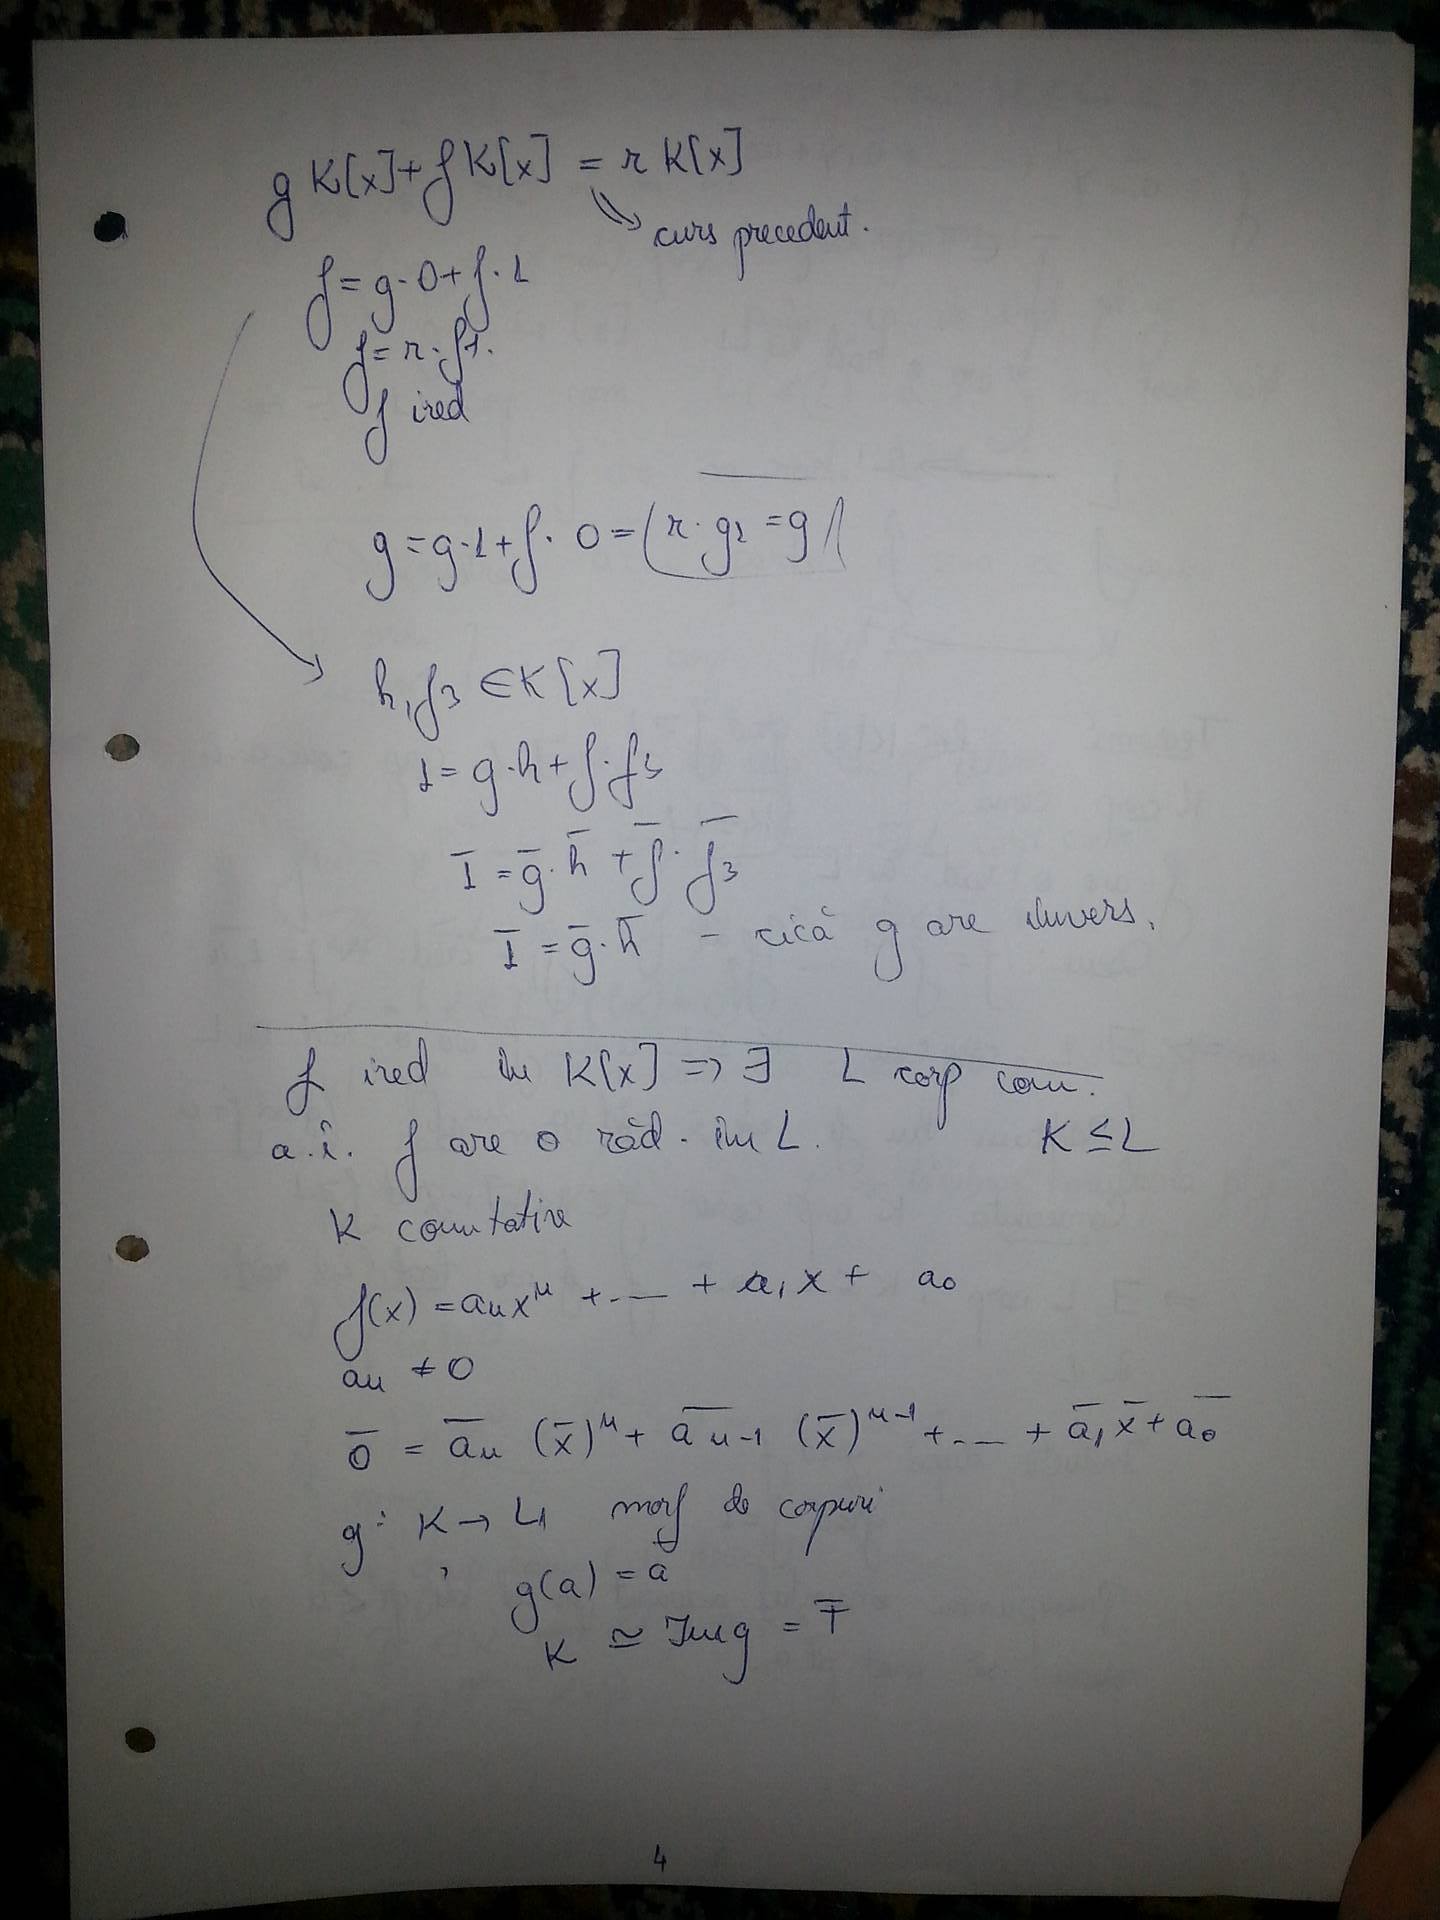 g K[x] + f K[x] = r K[x]
curs precedent.
f = g·0 + f·1
f = r·f1.
f ired
g = g·1 + f·0 = (r·g2 = g)
h, f3 ∈ K[x]
1 = g·h + f·f3
1̄ = ḡ·h̄ + f̄·f̄3
1̄ = ḡ·h̄ - cică g are invers.
f ired în K[x] => ∃ L corp com.
a.î. f are o răd. în L. K ≤ L
K comutativ
f(x) = aₙxⁿ + .... + a₁x + a₀
aₙ ≠ 0
0̄ = āₙ (x̄)ⁿ + āₙ₋₁ (x̄)ⁿ⁻¹ + .... + ā₁x̄ + ā₀
g: K → L1 morf de corpuri
g(a) = a
K ≃ Im g = F̄
4